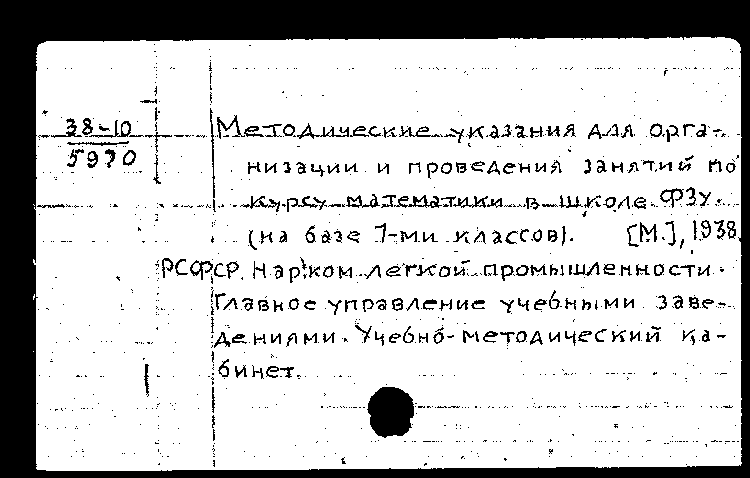 38-10
5970
Методические указания для орга-
низации и проведения занятий по
курсу математики в школе ФЗУ.
(на базе 7-ми классов). [М.], 1938.
РСФСР. Нарком легкой промышленности.
Главное управление учебными заве-
дениями. Учебно-методический ка-
бинет.